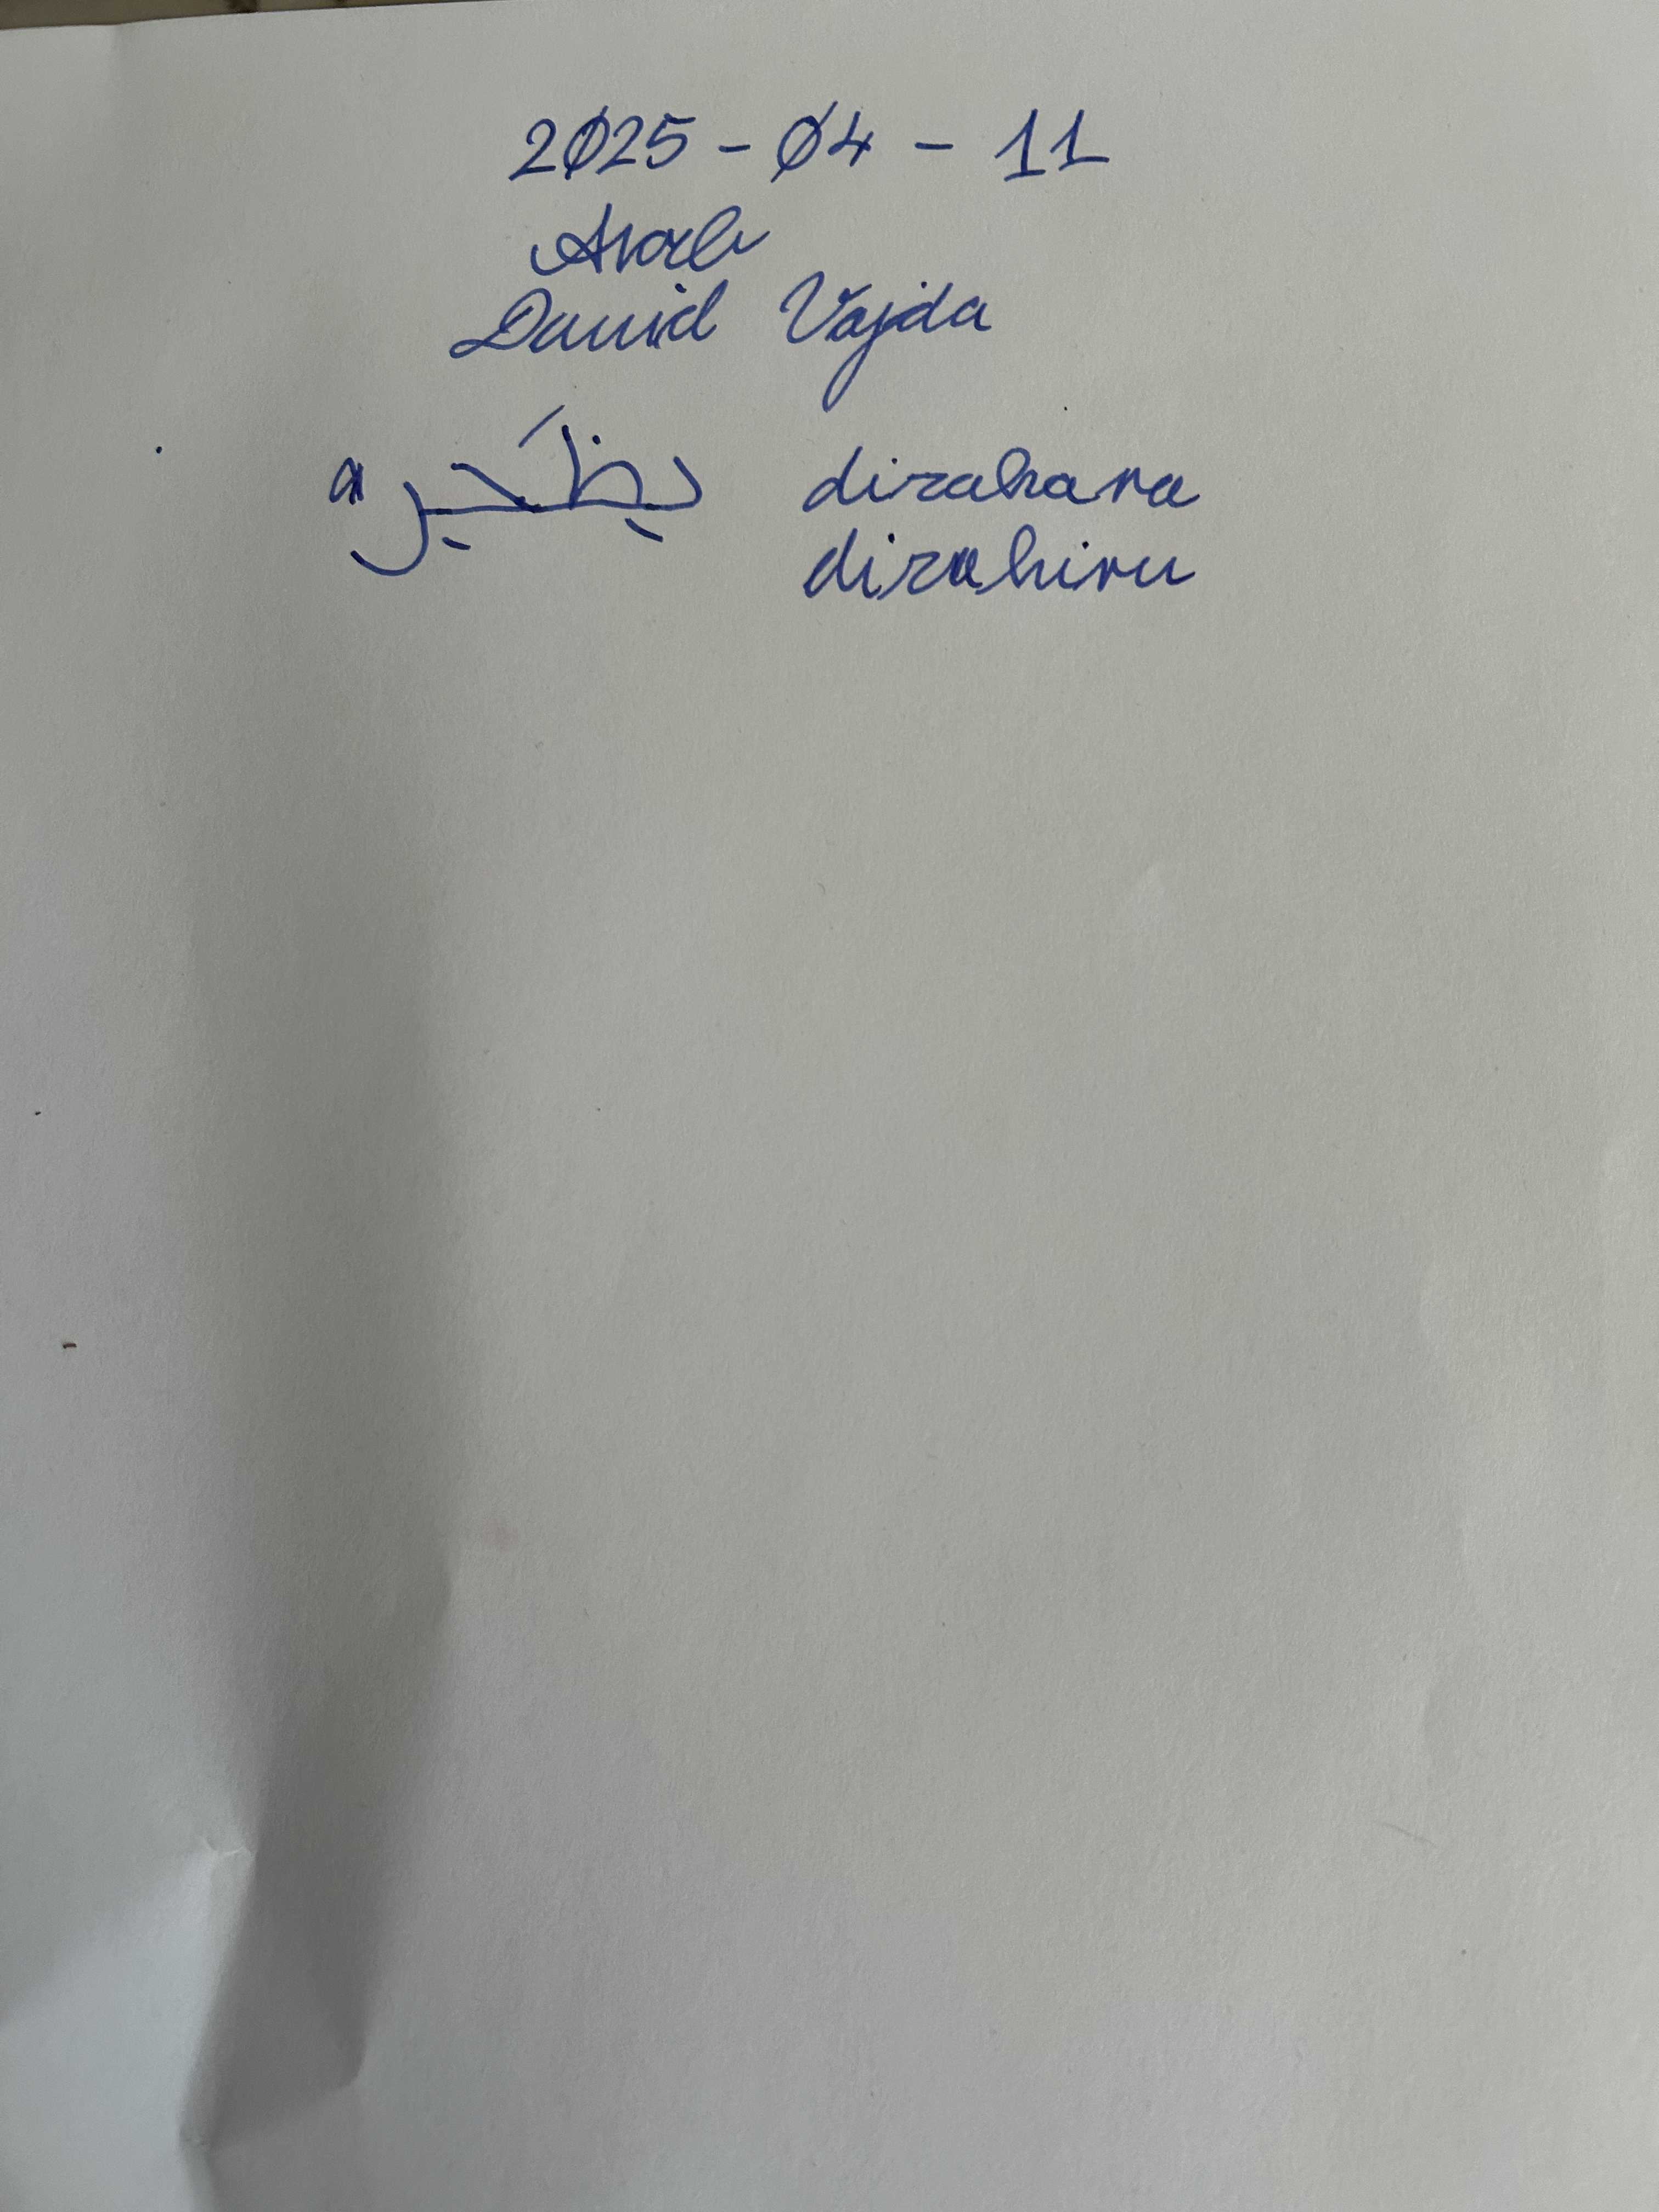 2025-04-11
Arab
David Vajda
dirahara
dirahiru